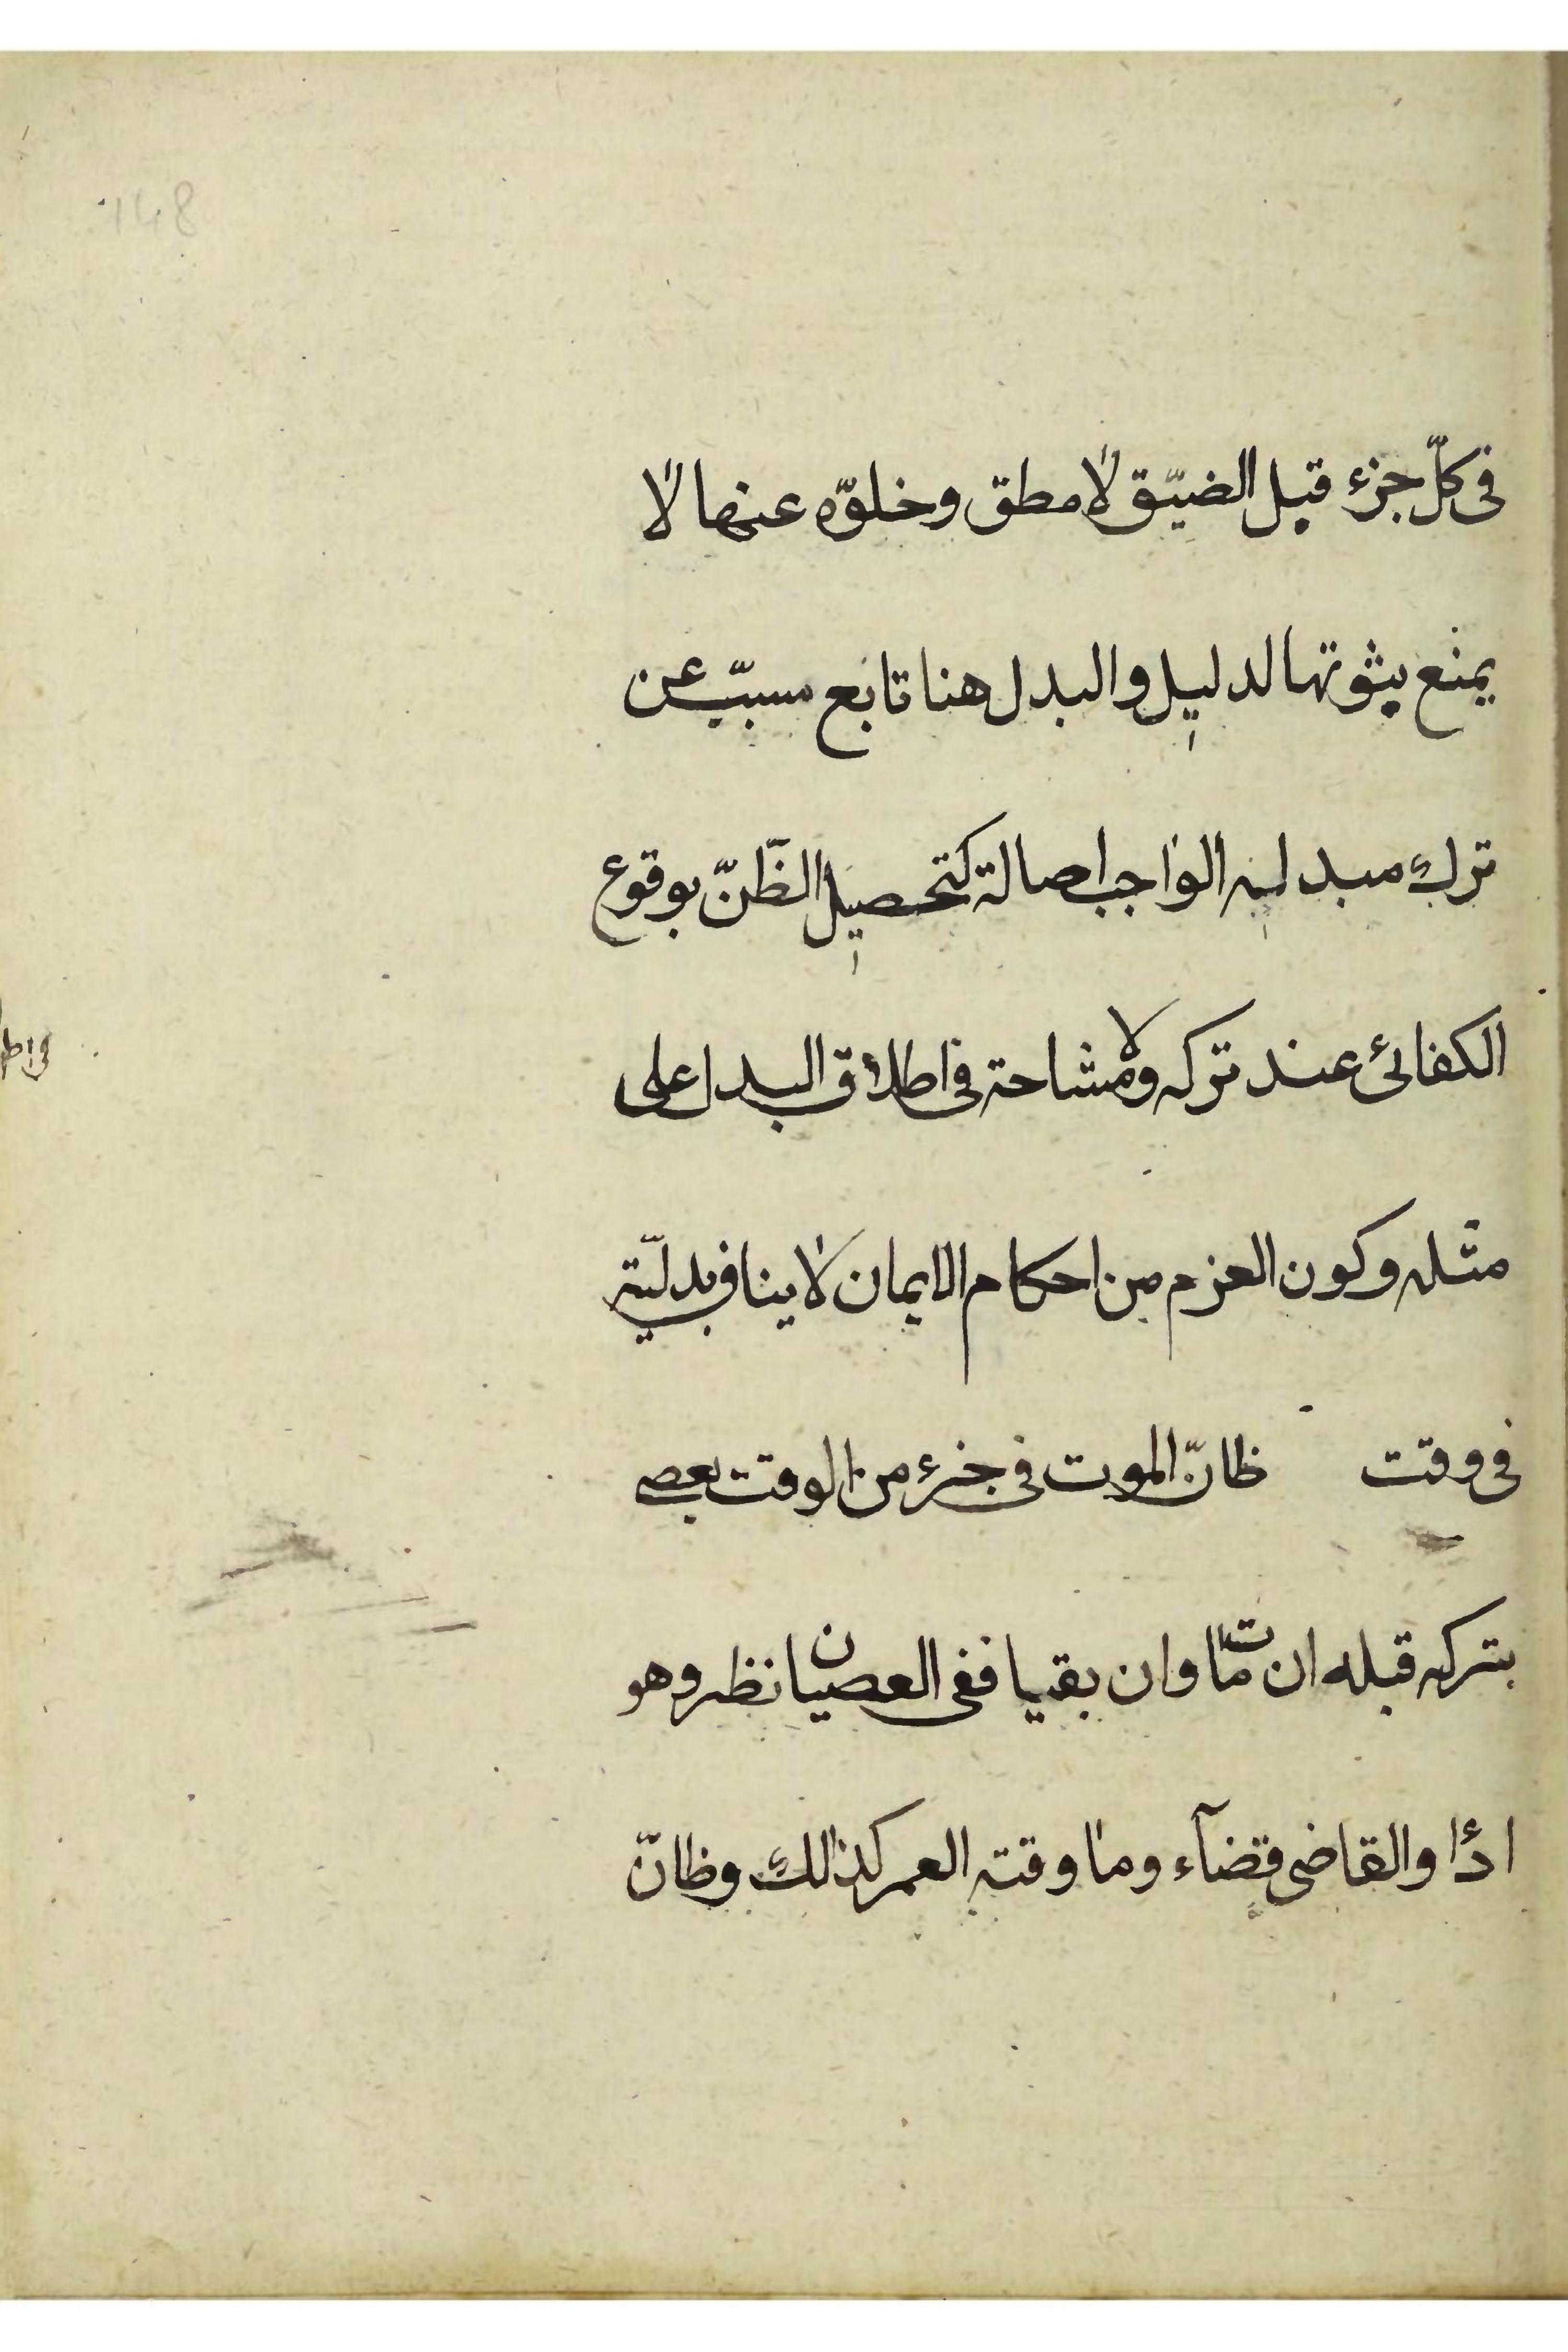 148
فى كلّ جزء قبل الضيّق لا مطق وخلوّه عنها لا
يمنع بثوتها لدليل والبدل هنا تابع مسبّب عن
ترك مبدلیه الواجب اصالة كتحصيل الظّنّ بوقوع
الكفائى عند تركه ولا مشاحة فى اطلاق البدل على
مثله وكون العزم من احكام الايمان لا ينافى بدليّته
فى وقت ظانّ الموت فى جزء من الوقت يعصى
بتركه قبله ان مات وان بقيا ففى العصيان نظر وهو
ادٔا والقاضى قضآء وما وقته العمر كذالك وظانّ